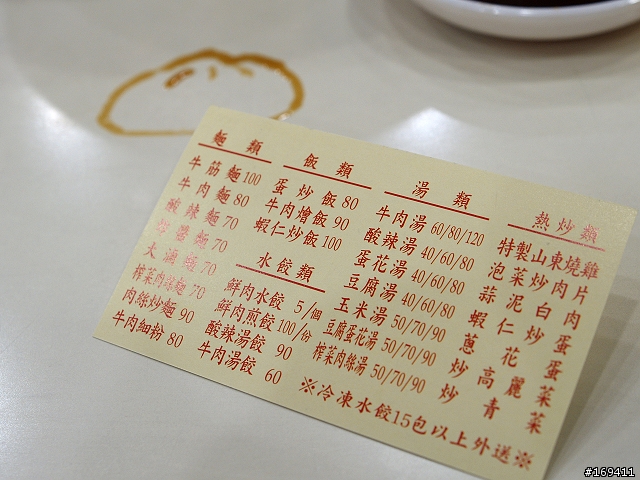 麵類
牛筋麵100
牛肉麵 80
酸辣麵 70
炸醬麵 70
大滷麵 70
榨菜肉絲麵 70
肉絲炒麵 90
牛肉細粉 80
飯類
蛋炒飯 80
牛肉燴飯 90
蝦仁炒飯 100
水餃類
鮮肉水餃 5/個
鮮肉煎餃 100/份
酸辣湯餃 90
牛肉湯餃 60
湯類
牛肉湯 60/80/120
酸辣湯 40/60/80
蛋花湯 40/60/80
豆腐湯 40/60/80
玉米湯 50/70/90
豆腐蛋花湯 50/70/90
榨菜肉絲湯 50/70/90
熱炒類
特製山東燒雞
泡菜炒肉片
蒜泥白肉
蝦仁炒蛋
蔥花蛋
炒高麗菜
炒青菜
※冷凍水餃15包以上外送※
#169411